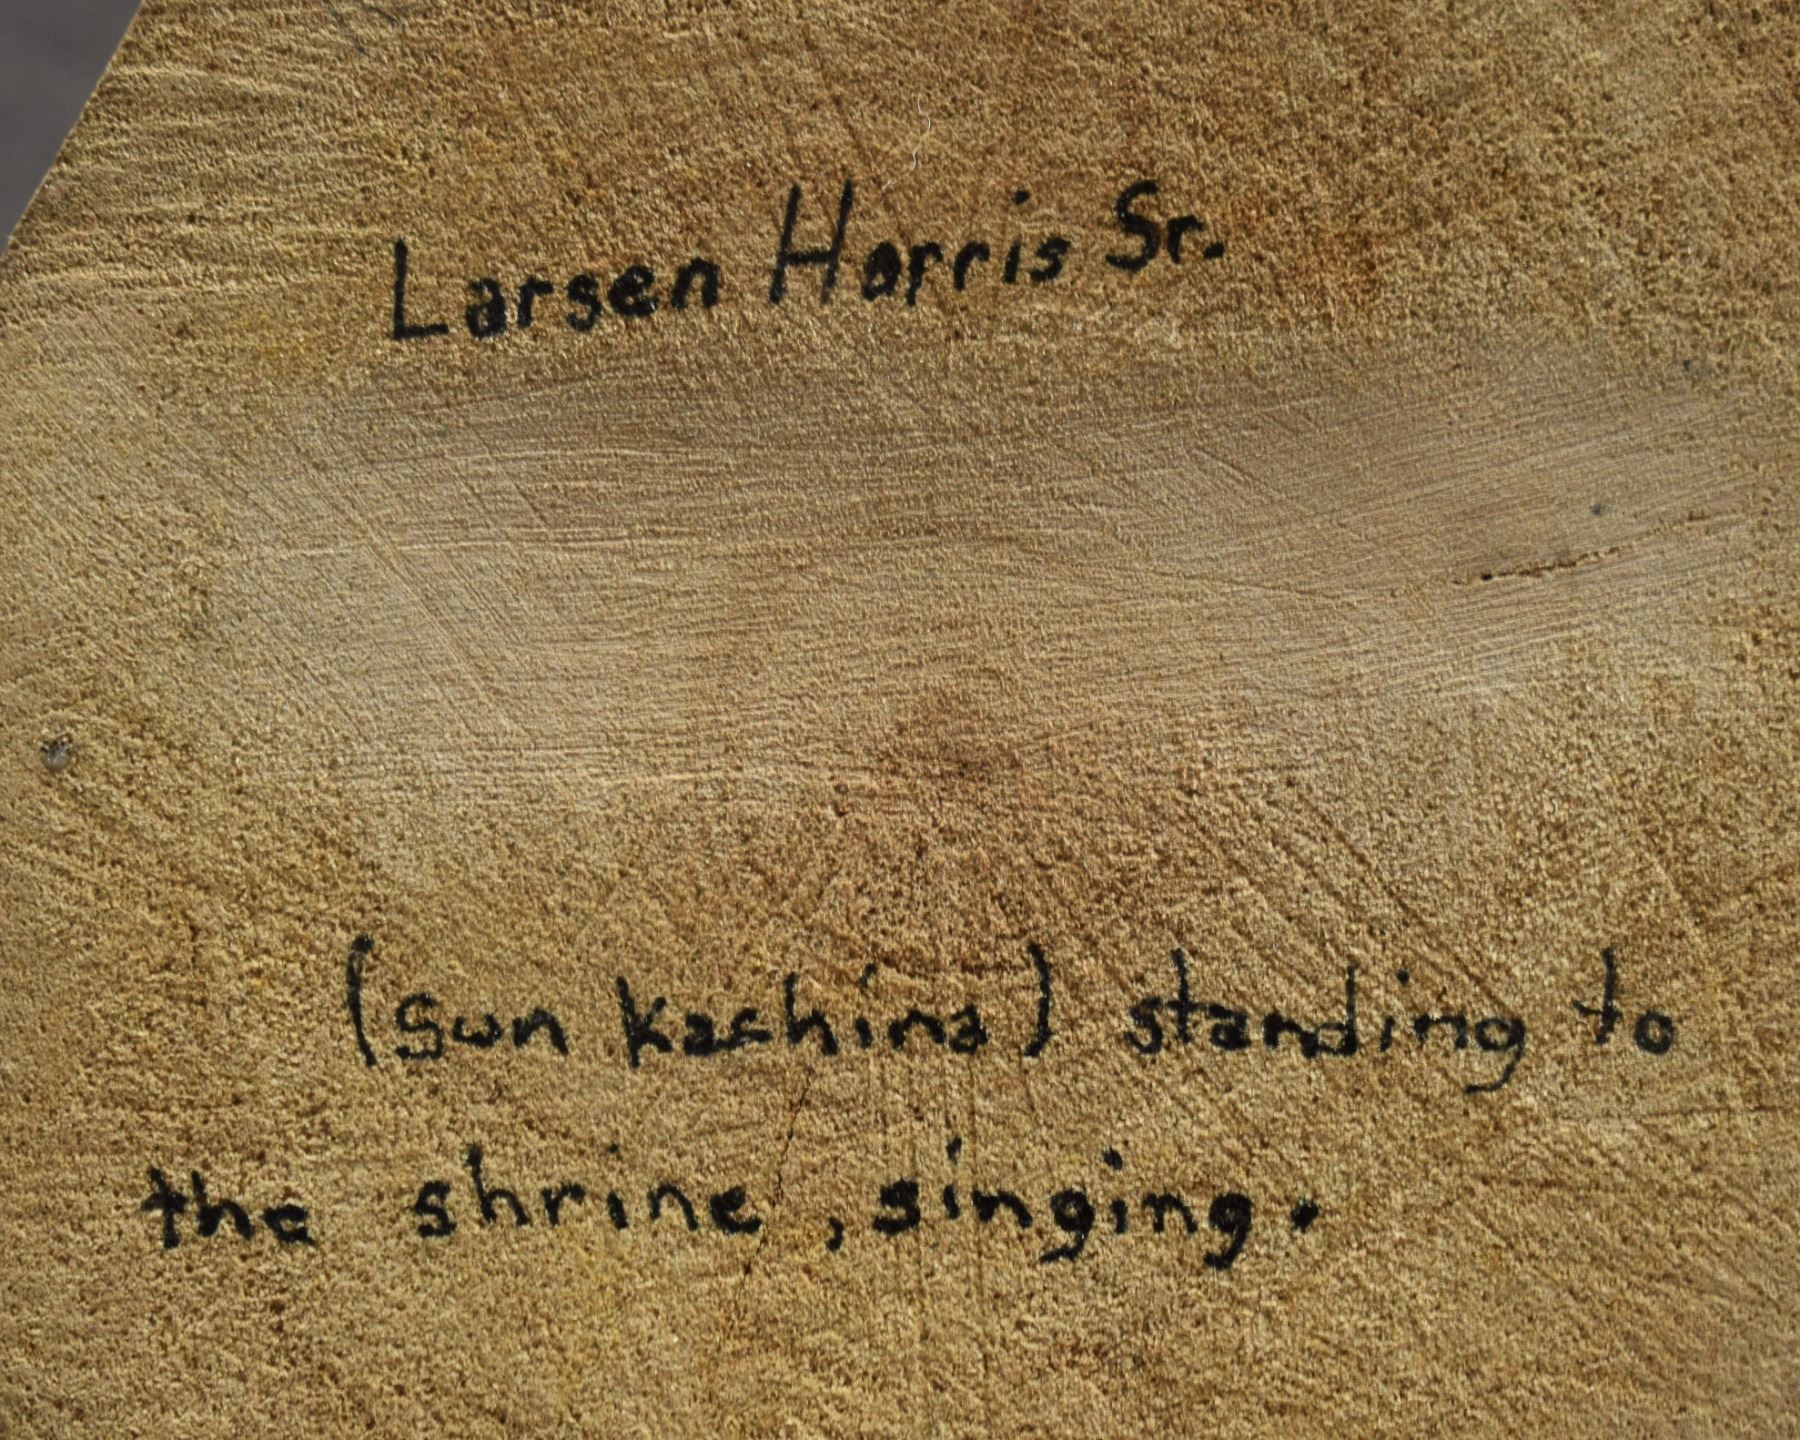 Larsen Harris Sr.
(sun kachina) standing to
the shrine, singing.